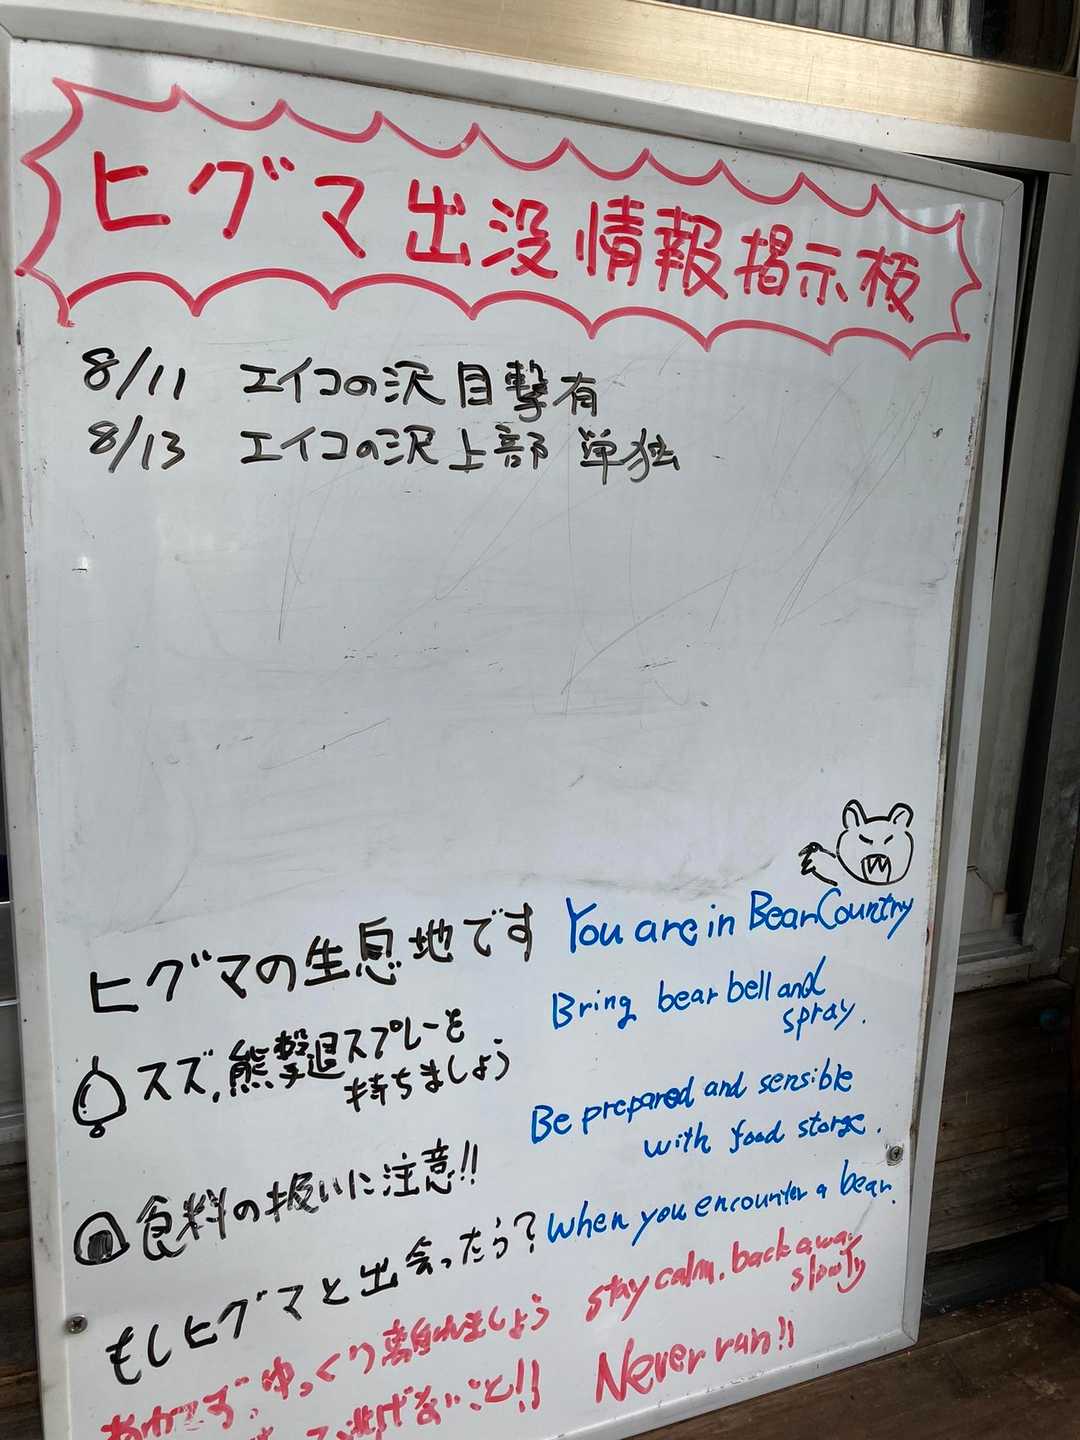 ヒグマ出没情報掲示板
8/11 エイコの沢 目撃有
8/13 エイコの沢上部 単独
ヒグマの生息地です
スズ,熊撃退スプレーを
持ちましょう
食料の扱いに注意!!
もしヒグマと出会ったら?
あわてず,ゆっくり離れましょう
逃げないこと!!
You are in Bear Country
Bring bear bell and
spray.
Be prepared and sensible
with food storge.
When you encounter a bear.
stay calm. back away
slowly
Never run!!